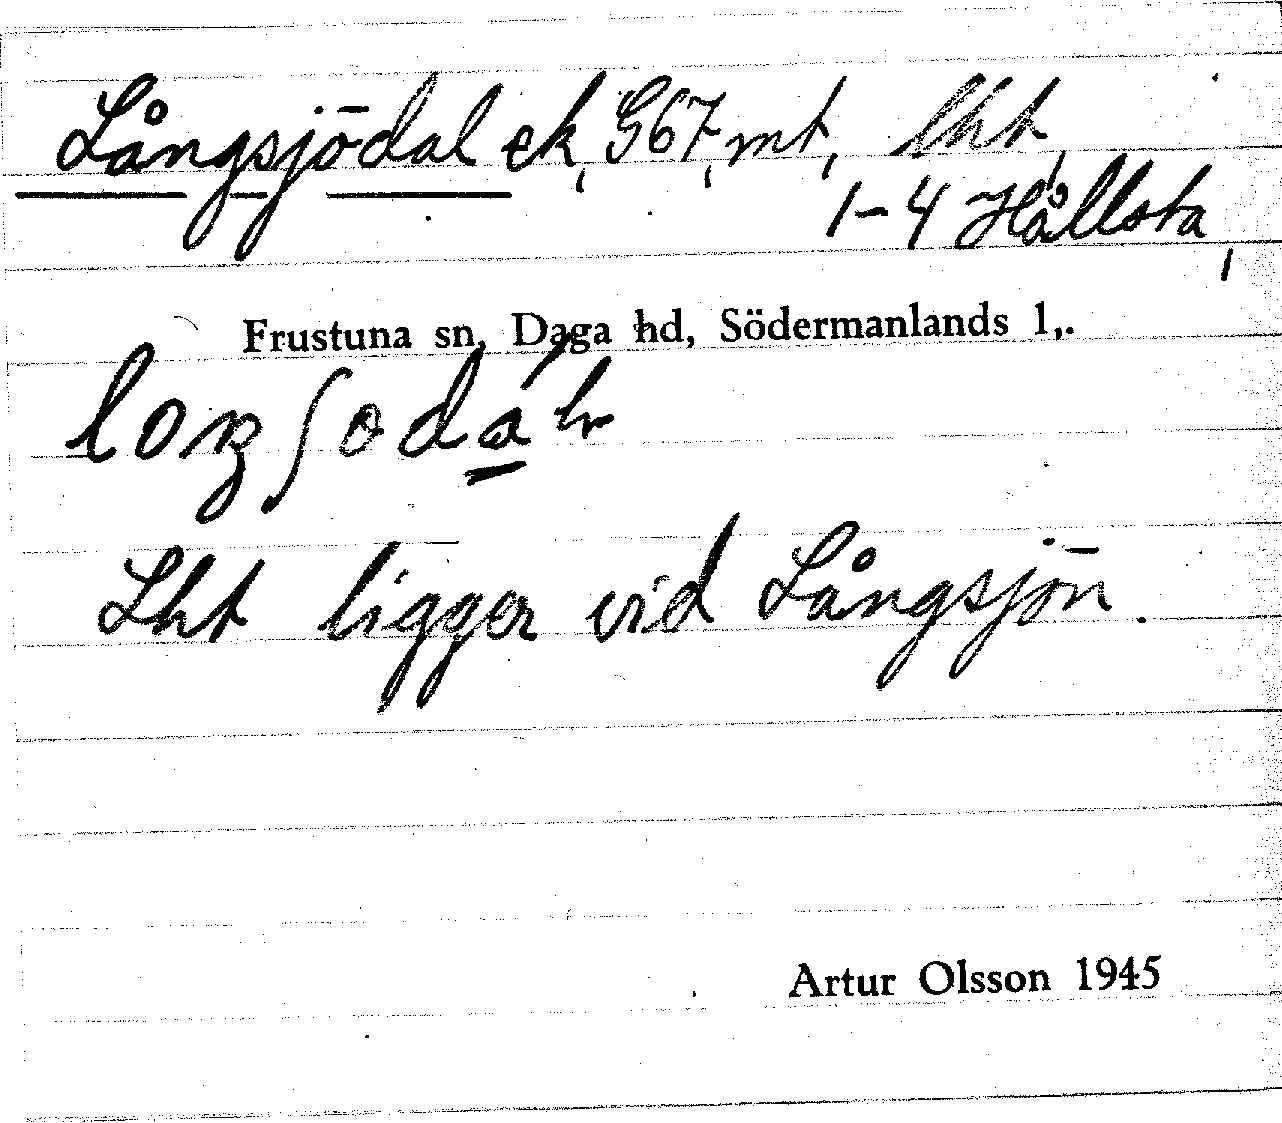 Långsjödal ek, G67, mt, lht,
1-4 Hållsta,
Frustuna sn, Daga hd, Södermanlands l,.
Lht ligger vid Långsjön.
Artur Olsson 1945